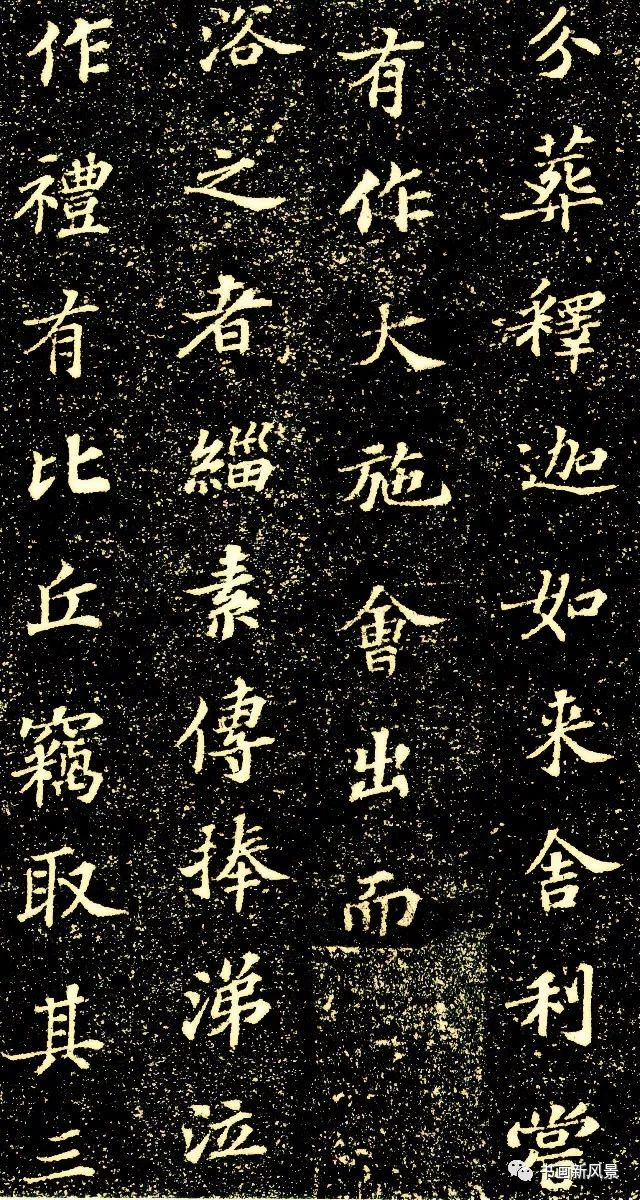 分葬釋迦如来舎利嘗
有作大施會出而
浴之者緇素傳捧涕泣
作禮有比丘竊取其三
书画新风景